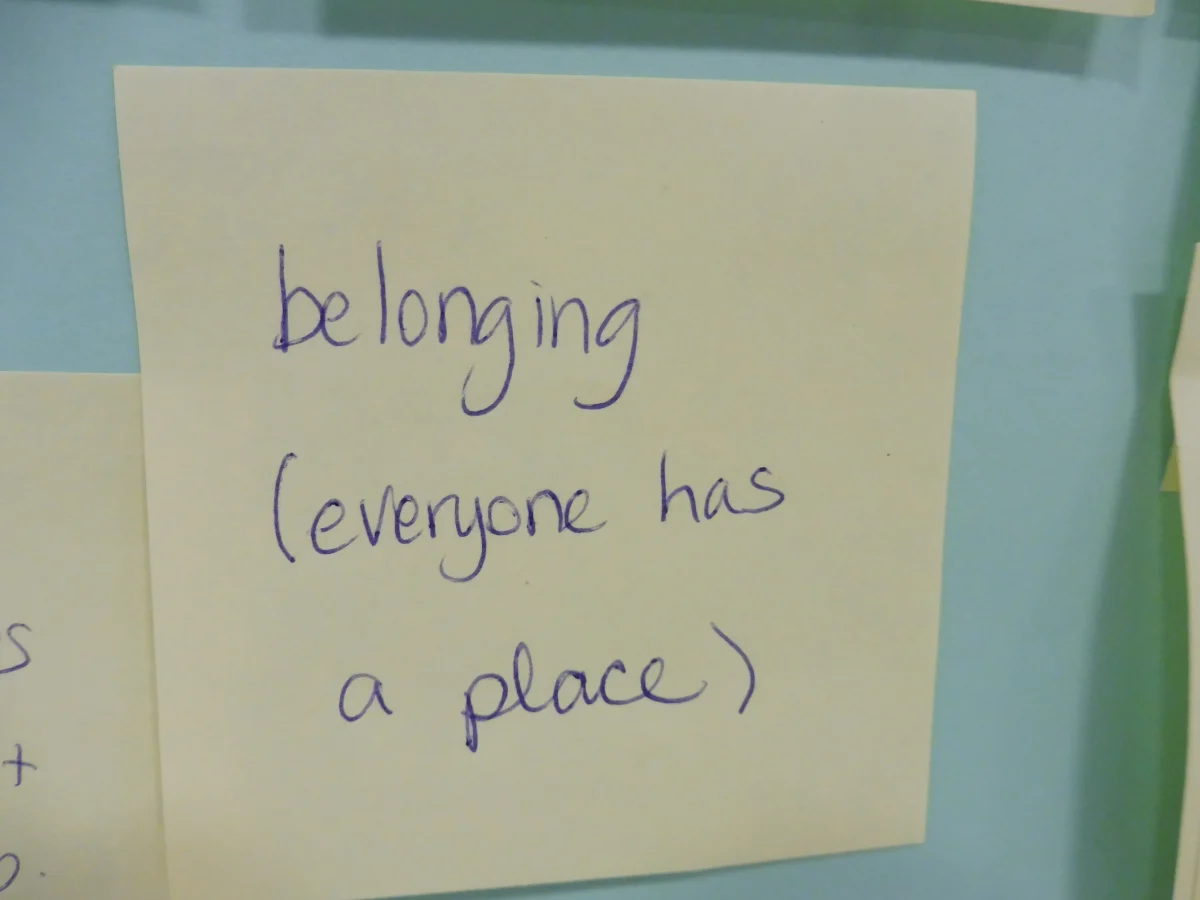 belonging
(everyone has
a place)